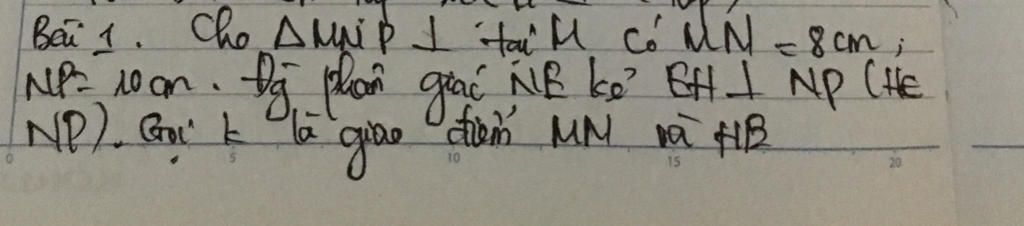 Bài 1. Cho ΔMNP ⊥ tại M có MN = 8cm;
NP = 10cm. Đg phân giác NE kẻ EH ⊥ NP (H∈
NP). Gọi k là giao điểm MN và HB
0 5 10 15 20